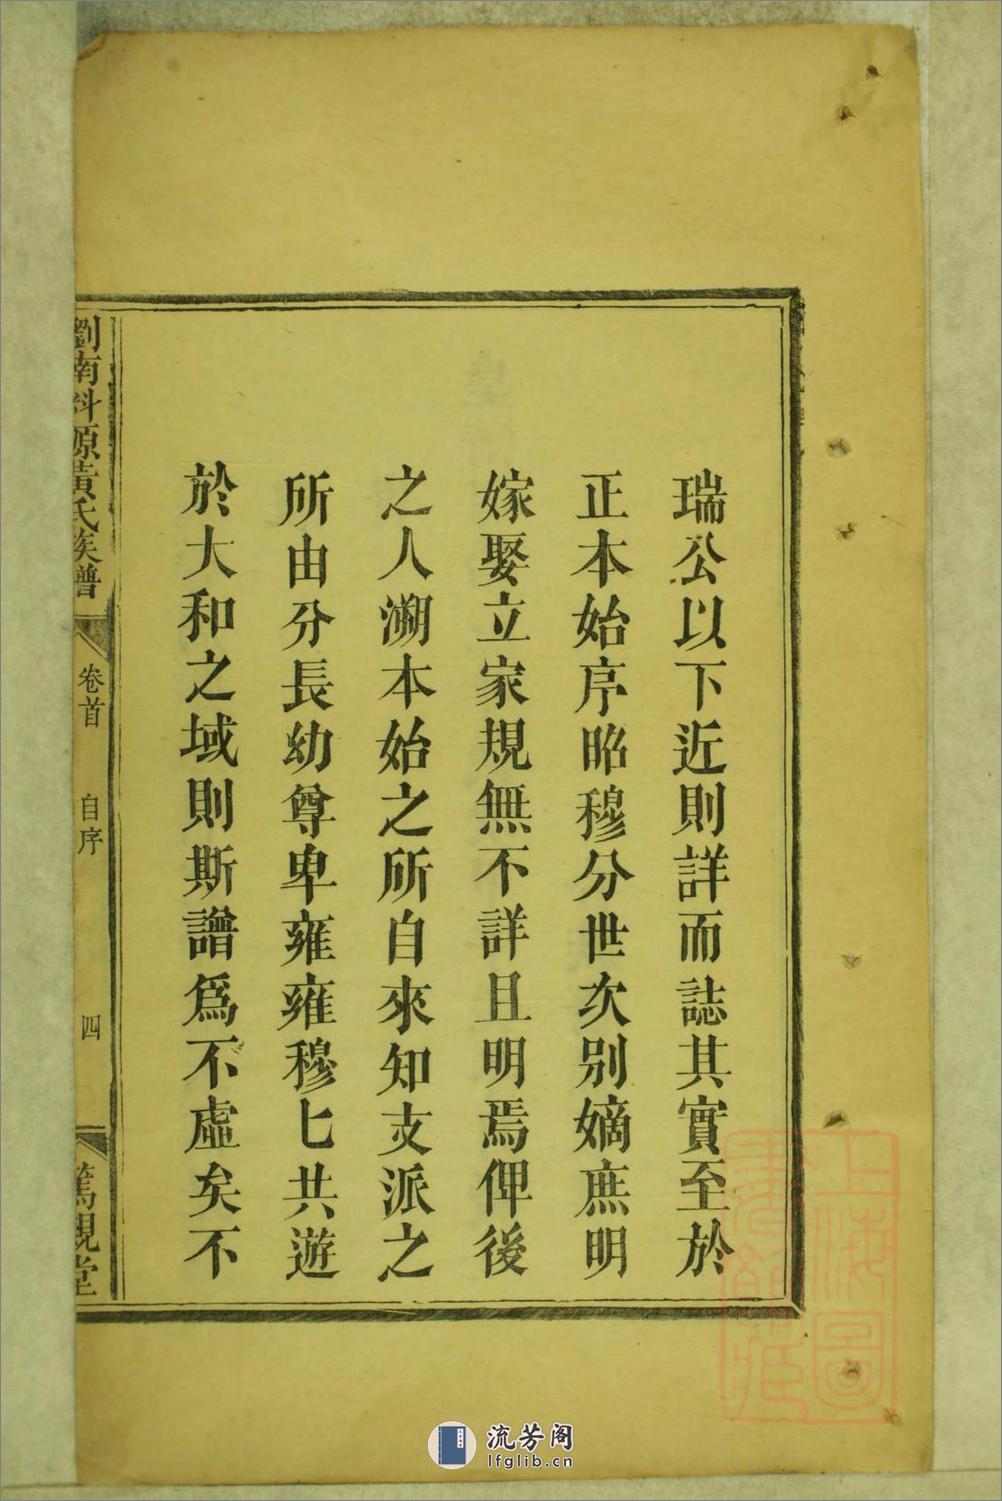 瑞公以下近則詳而誌其實至於
正本始序昭穆分世次別嫡庶明
嫁娶立家規無不詳且明焉俾後
之人溯本始之所自來知支派之
所由分長幼尊卑雍雍穆匕共遊
於大和之域則斯譜爲不虛矣不
劉南科源黃氏族譜
卷首
自序
四
篤親堂
上海圖
書館藏
流芳阁
lfglib.cn